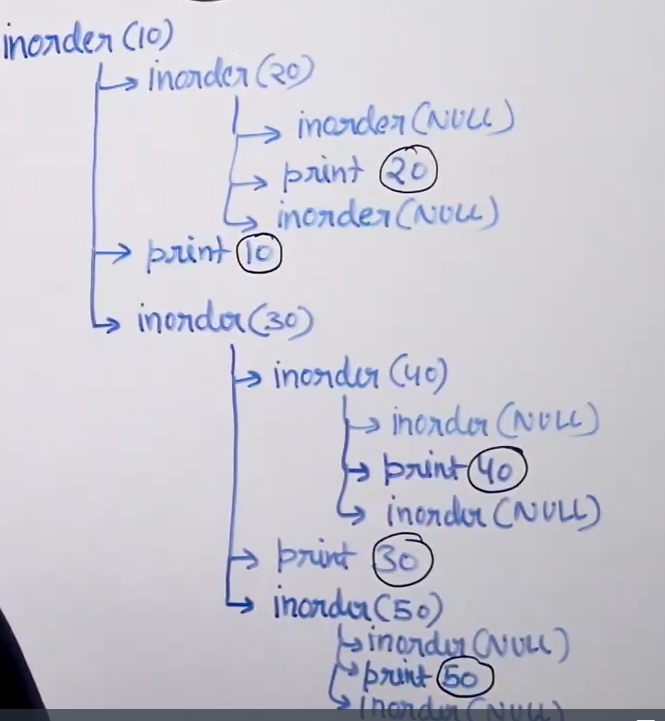 inorder(10)
inorder(20)
inorder(NULL)
print 20
inorder(NULL)
print 10
inorder(30)
inorder(40)
inorder(NULL)
print 40
inorder(NULL)
print 30
inorder(50)
inorder(NULL)
print 50
inorder(NULL)